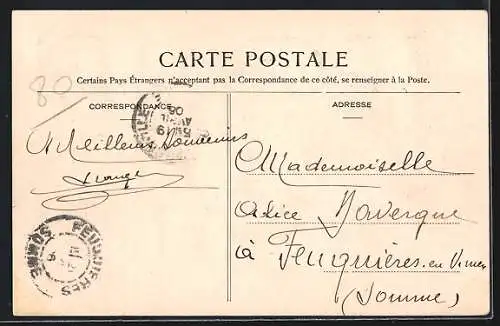 CARTE POSTALE
Certains Pays Étrangers n'acceptant pas la Correspondance de ce côté, se renseigner à la Poste.
80
CORRESPONDANCE
ADRESSE
AVRIL
Meilleurs Souvenirs
Mademoiselle
Alice
à Feuquières-en-Vimeu
(Somme)
FEUQUIERES
SOMME